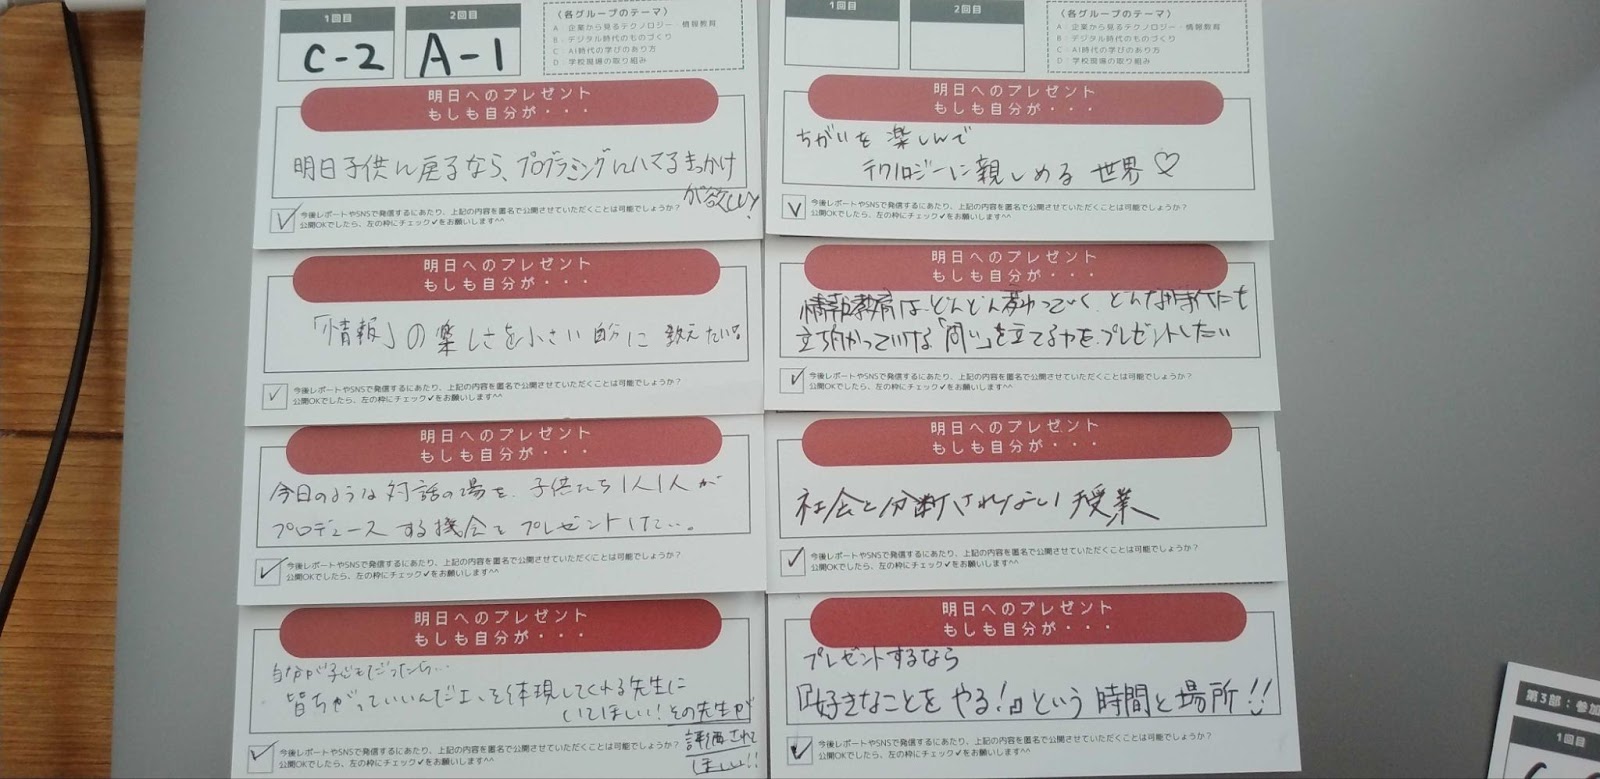 1回目
2回目
C-2
A-1
(各グループのテーマ)
A：企業から見るテクノロジー・情報教育
B：デジタル時代のものづくり
C：AI時代の学びのあり方
D：学校現場の取り組み
明日へのプレゼント
もしも自分が・・・
明日子供に戻るなら、プログラミングにハマるきっかけ
が欲しい!
今後レポートやSNSで発信するにあたり、上記の内容を匿名で公開させていただくことは可能でしょうか？
公開OKでしたら、左の枠にチェック✔をお願いします^^
明日へのプレゼント
もしも自分が・・・
「情報」の楽しさを小さい自分に教えたい。
今後レポートやSNSで発信するにあたり、上記の内容を匿名で公開させていただくことは可能でしょうか？
公開OKでしたら、左の枠にチェック✔をお願いします^^
明日へのプレゼント
もしも自分が・・・
今日のような対話の場を、子供たち1人1人が
プロデュースする機会をプレゼントしたい。
今後レポートやSNSで発信するにあたり、上記の内容を匿名で公開させていただくことは可能でしょうか？
公開OKでしたら、左の枠にチェック✔をお願いします^^
明日へのプレゼント
もしも自分が・・・
自分が子どもだったら…
皆ちがっていいんだよ、を体現してくれる先生に
いてほしい! その先生が
評価されて
ほしい!!
今後レポートやSNSで発信するにあたり、上記の内容を匿名で公開させていただくことは可能でしょうか？
公開OKでしたら、左の枠にチェック✔をお願いします^^
1回目
2回目
(各グループのテーマ)
A：企業から見るテクノロジー・情報教育
B：デジタル時代のものづくり
C：AI時代の学びのあり方
D：学校現場の取り組み
明日へのプレゼント
もしも自分が・・・
ちがいを楽しんで
テクノロジーに親しめる世界♡
今後レポートやSNSで発信するにあたり、上記の内容を匿名で公開させていただくことは可能でしょうか？
公開OKでしたら、左の枠にチェック✔をお願いします^^
明日へのプレゼント
もしも自分が・・・
情報教育はどんどん変わっていく、どんな時代にも
立ち向かっていける「問い」を立てる力をプレゼントしたい
今後レポートやSNSで発信するにあたり、上記の内容を匿名で公開させていただくことは可能でしょうか？
公開OKでしたら、左の枠にチェック✔をお願いします^^
明日へのプレゼント
もしも自分が・・・
社会と分断されない授業
今後レポートやSNSで発信するにあたり、上記の内容を匿名で公開させていただくことは可能でしょうか？
公開OKでしたら、左の枠にチェック✔をお願いします^^
明日へのプレゼント
もしも自分が・・・
プレゼントするなら
『好きなことをやる!』という時間と場所!!
今後レポートやSNSで発信するにあたり、上記の内容を匿名で公開させていただくことは可能でしょうか？
公開OKでしたら、左の枠にチェック✔をお願いします^^
第3部：参加
1回目